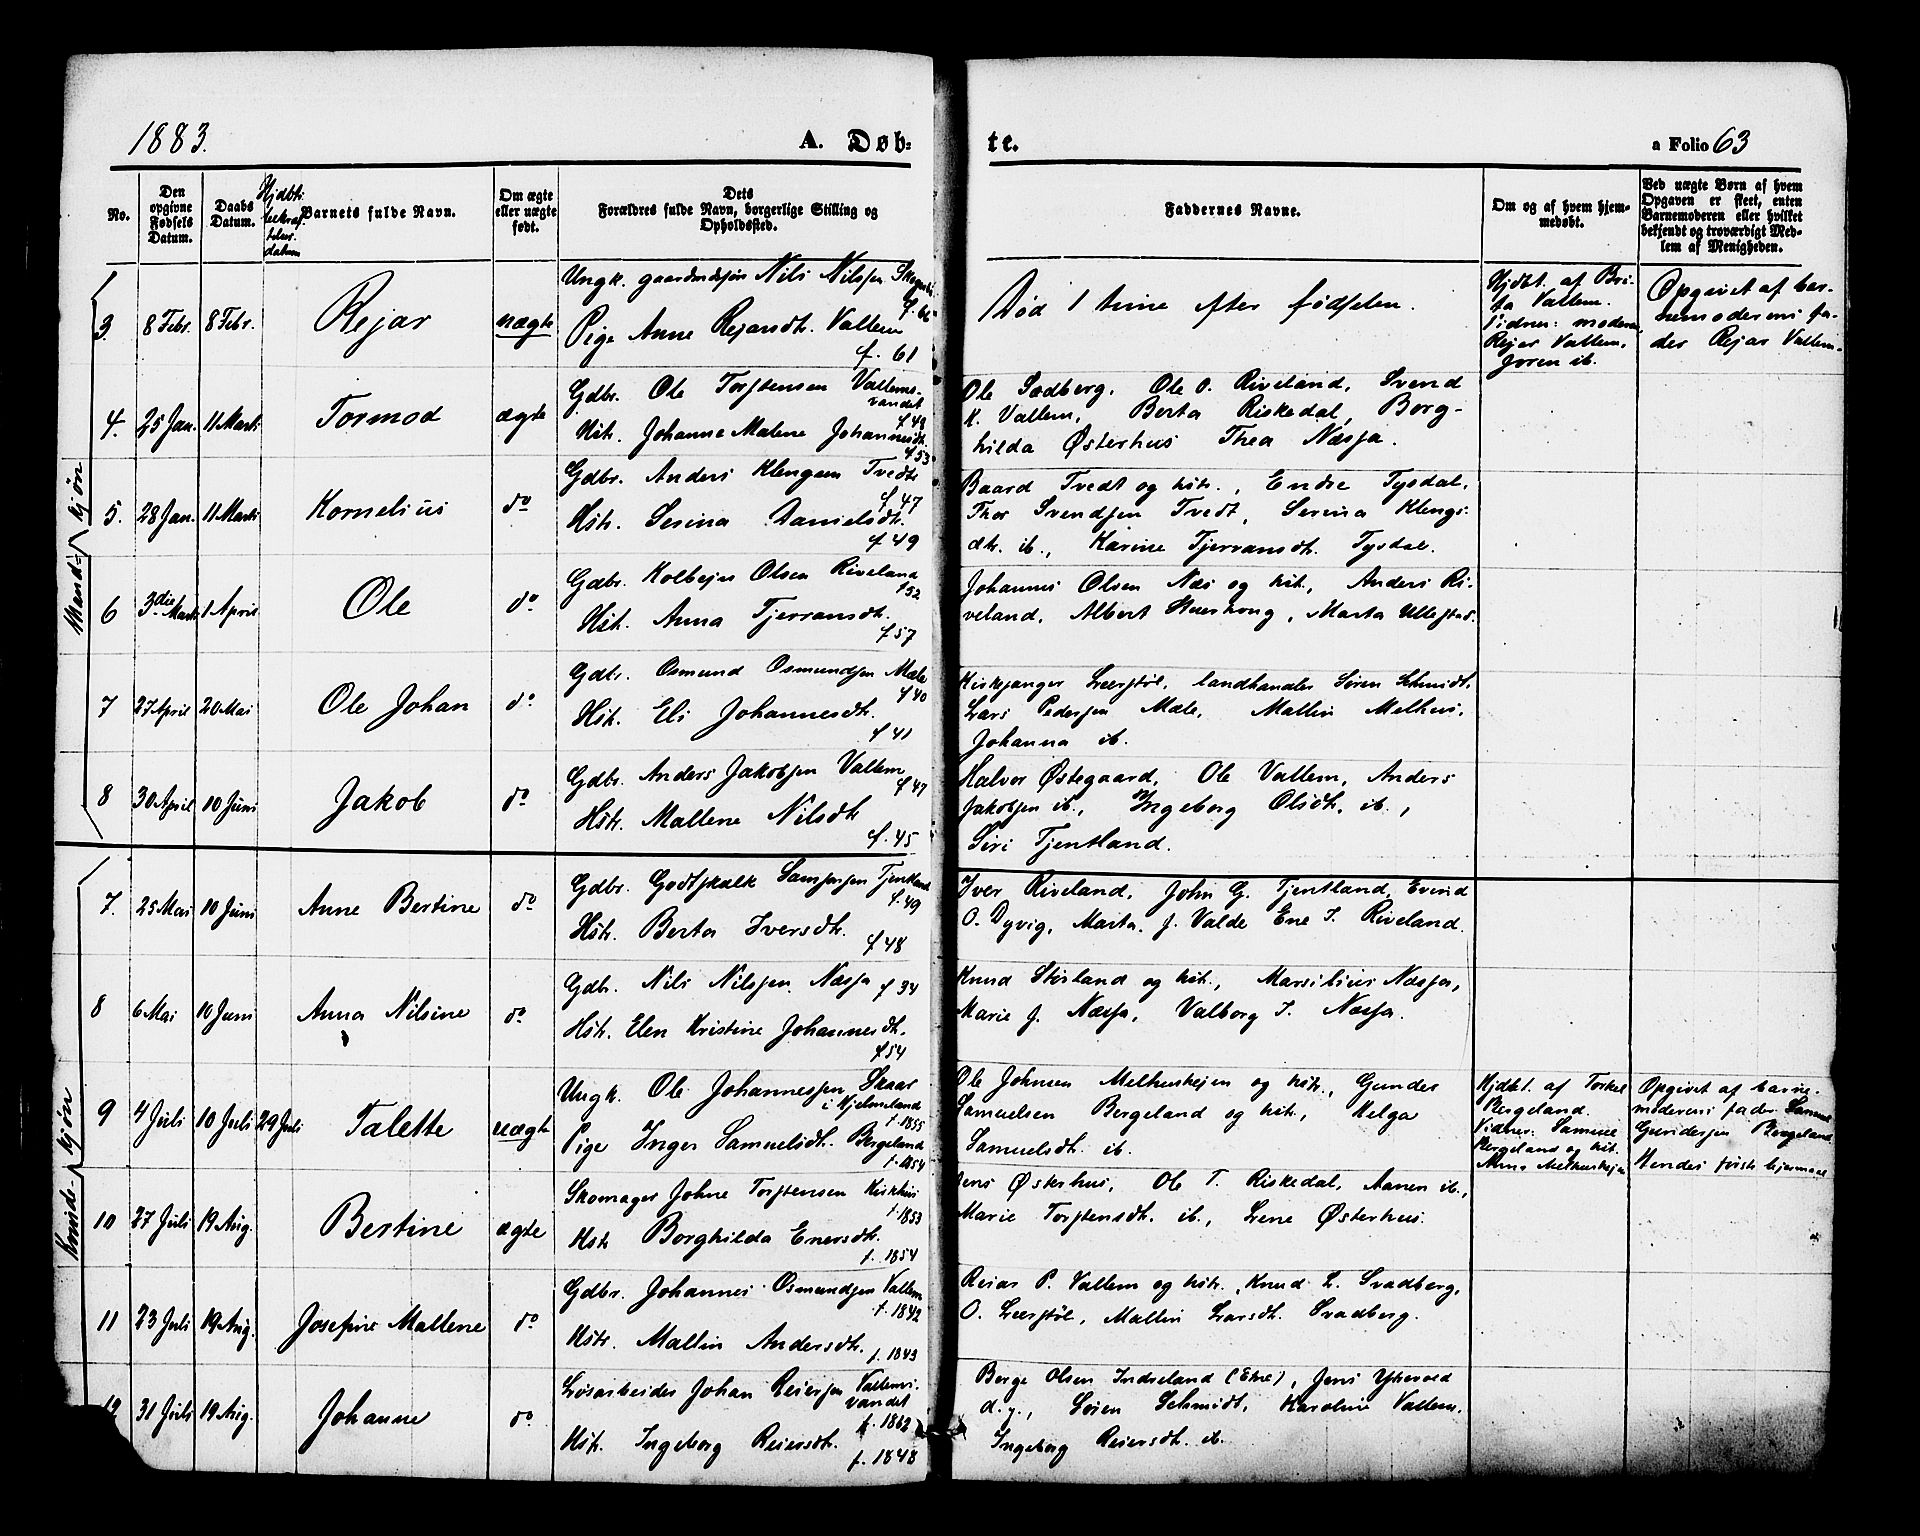 1883.
A. Døb-
te.
a Folio 63
No.
Den opgivne Fødsels Datum.
Daabs Datum.
Hjdbts bekræftelses datum
Barnets fulde Navn.
Om ægte eller uægte født.
Dets
Forældres fulde Navn, borgerlige Stilling og
Opholdssted.
Faddernes Navne.
Om og af hvem hjemmedøbt.
Ved uægte Børn af hvem Opgaven er skeet, enten Barnemoderen eller hvilket bekjendt og troværdigt Medlem af Menigheden.
Mand-kjøn
3. 8 Febr. 8 Febr. Rejar uægte
Ungk. gaardmdssøn Nils Nilssen
Pige Anne Rejarsdtr. Vallem
f. 61
Død 1 time efter fødselen.
Hjdbt. af Bri-
ta Vallem.
Vidner: moderen,
Rejar Vallem,
Joren ib.
Opgivet af bar-
nemoderens fa-
der Rejar Vallem.
4. 25 Jan. 11 Marts Tormod ægte
Gdbr. Ole Torstensen Vallems-
vandet
f 48
Hst. Johanne Malene Johannesdt.
f 53
Ole Sædberg, Ole O. Riveland, Svend
K. Vallem, Berta Riskedal, Borg-
hilda Østerhus Thea Næsja.
5. 28 Jan. 11 Marts Kornelius do
Gdbr. Anders Klengsen Tvedt
f 47
Hstr. Serina Danielsdtr.
f 49
Baard Tvedt og hstr., Endre Tysdal,
Thor Svendsen Tvedt, Serina Klengs-
dtr. ib., Karine Tjerransdtr. Tysdal.
6 3die Marts 1 April Ole do
Gdbr. Kolbejn Olsen Riveland
f 52
Hst. Anna Tjerransdtr.
f 57
Johannes Olsen Næs og hst., Anders Ri-
veland, Albert, Marta Ullestad.
7 27 April 20 Mai Ole Johan do
Gdbr. Osmund Osmundsen Mæle
f 40
Hst. Eli Johannesdtr.
f 41
Kirkesanger Leerstøl, landhandler Søren Schmidt,
Lars Pedersen Mæle, Mallin Melhus,
Johanna ib.
8 30 April 10 Juni Jakob do
Gdbr. Anders Jakobsen Vallem
f 47
Hstr. Mallene Nilsdtr
f. 45
Halvor Østegaard, Ole Vallem, Anders
Jakobsen ib., Ingeborg Olsdtr. ib.,
Siri Tjentland.
Kvinde-kjøn
7. 25 Mai 10 Juni Anne Bertine do
Gdbr. Godtskalk Samsonsen Tjentland
f. 49
Hst. Berta Iversdtr.
f 48
Iver Riveland, John G. Tjentland, Evind
O. Dyvig, Marta J. Valde Ene I. Riveland.
8 6 Mai 10 Juni Anna Nilsine do
Gdbr. Nils Nilssen Næsja f 34
Hst. Elen Kristine Johannesdtr.
f 54
Knud Størland og hst., Marsilius Næsja,
Marie J. Næsja, Valborg I. Næsja.
9 4 Juli 10 Juli 29 Juli Talette uægte
Ungk. Ole Johannessen Skaar
i Hjelmeland
f. 1855
Pige Inger Samuelsdtr. Bergeland
f. 1854
Ole Johnsen Melhushejen og hst., Gunder
Samuelsen Bergeland og hst., Helga
Samuelsdt. ib.
Hjdbt. af Torkel
Bergeland.
Vidner. Samuel
Bergeland og hst.
Anna Melhushejen
Opgivet af barne-
moderens fader Samuel
Gundersen Bergeland
Hendes første lejermaal
10 27 Juli 19 Aug. Bertine ægte
Skomager Johne Torstensen Kirkhus
f. 1853
Hst. Borghilda Enersdtr.
f. 1854
Jens Østerhus, Ole T. Riskedal, Aanen ib.,
Marie Torstensdt. ib., Lene Østerhus.
11 23 Juli 19 Aug. Josefine Mallene do
Gdbr. Johannes Osmundsen Vallem
f. 1842
Hstr. Mallin Andersdtr.
f. 1843
Reiar P. Vallem og hstr., Knud L. Svadberg,
O. Leerstøl, Mallin Larsdt. Svadberg.
12 31 Juli 19 Aug. Johanne do
Løsarbeider Johan Reiersen Vallems-
vandet
f. 1862
Hst. Ingeborg Reiersdtr.
f. 1848
Børge Olsen Indreland (Etne), Jens
d.y., Søren Schmidt, Karoline Vallem,
Ingeborg Reiersdtr. ib.